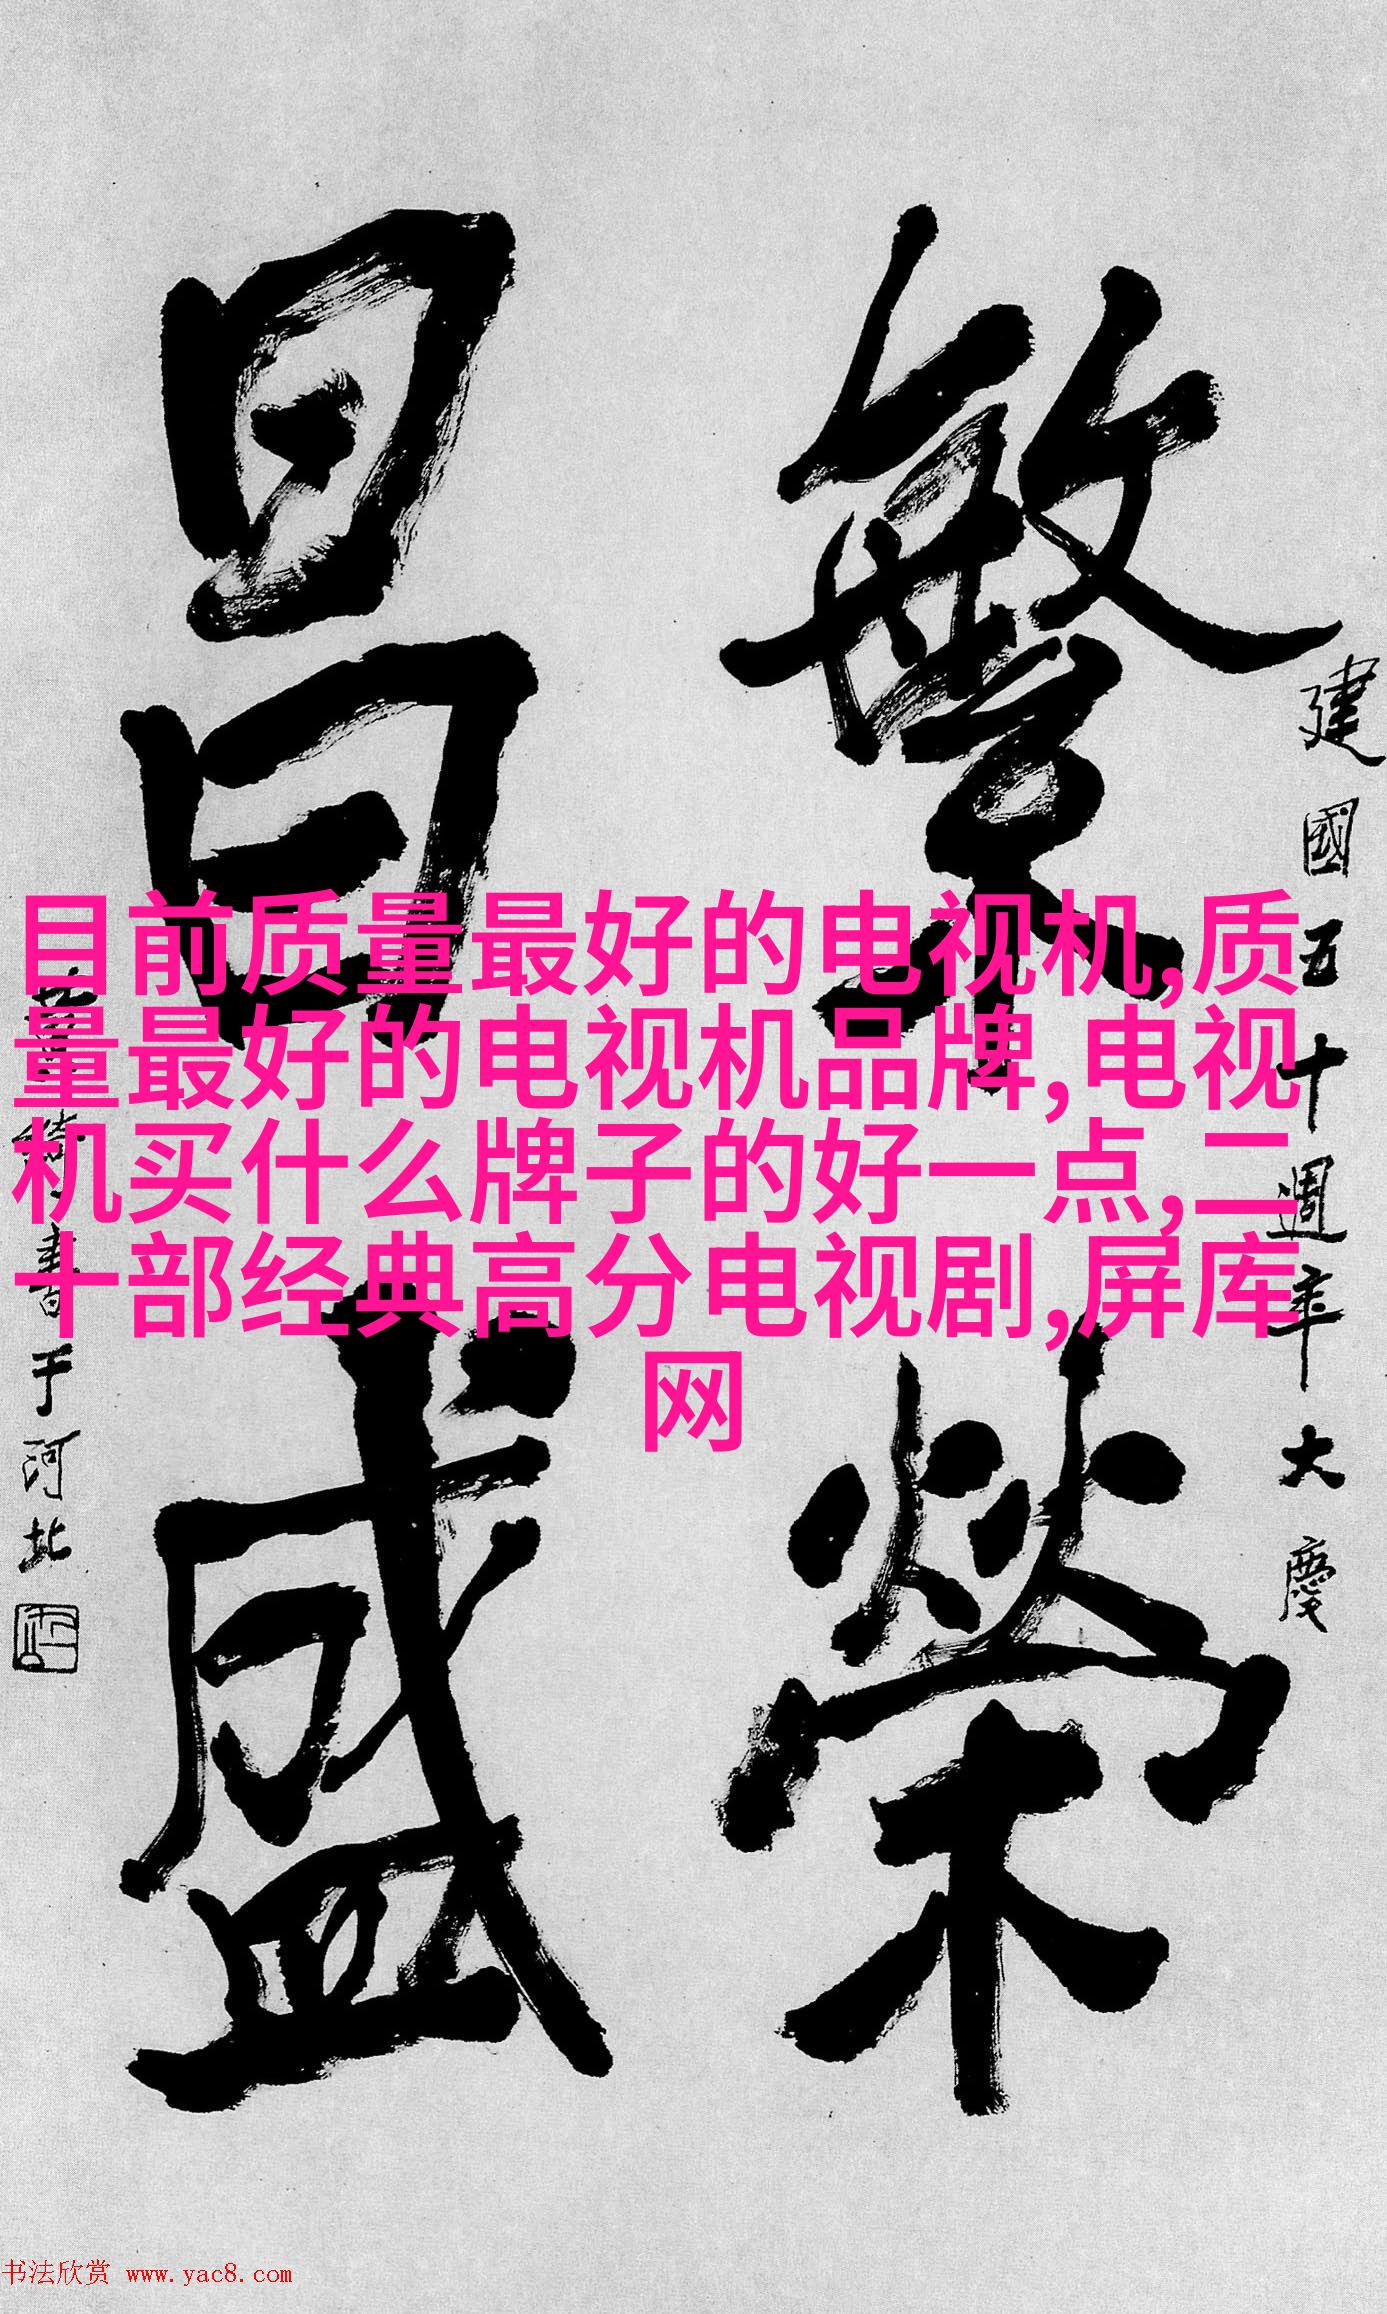 繁榮
昌盛
建國五十週年大慶
書于河北
目前质量最好的电视机,质
量最好的电视机品牌,电视
机买什么牌子的好一点,二
十部经典高分电视剧,屏库
网
书法欣赏 www.yac8.com